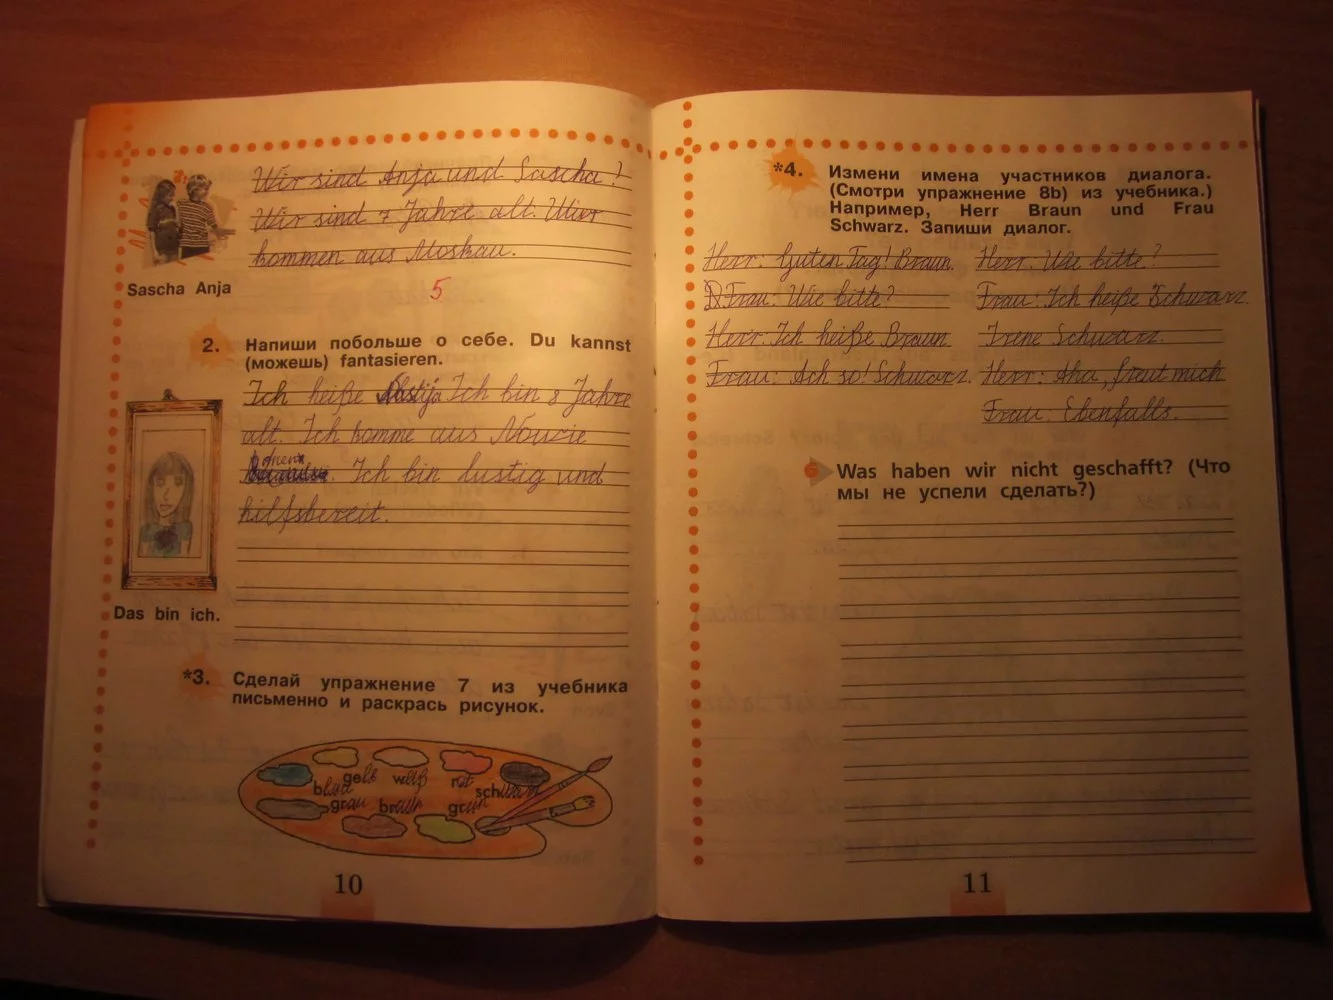 Wir sind Anja und Sascha!
Wir sind 7 Jahre alt. Wir
kommen aus Moskau.
Sascha Anja
5
2. Напиши побольше о себе. Du kannst
(можешь) fantasieren.
Ich heiße Nastja Ich bin 8 Jahre
alt. Ich komme aus
Ich bin lustig und
hilfsbereit.
Das bin ich.
*3. Сделай упражнение 7 из учебника
письменно и раскрась рисунок.
gelb weiß rot
blau schwarz
grau braun grün
10
*4. Измени имена участников диалога.
(Смотри упражнение 8b) из учебника.)
Например, Herr Braun und Frau
Schwarz. Запиши диалог.
Herr: Guten Tag! Braun.
Frau: Wie bitte?
Herr: Ich heiße Braun
Frau: Ach so! Schwarz.
Herr: Wie bitte?
Frau: Ich heiße Schwarz.
Irene Schwarz.
Herr: Aha, freut mich
Frau: Ebenfalls.
6 Was haben wir nicht geschafft? (Что
мы не успели сделать?)
11